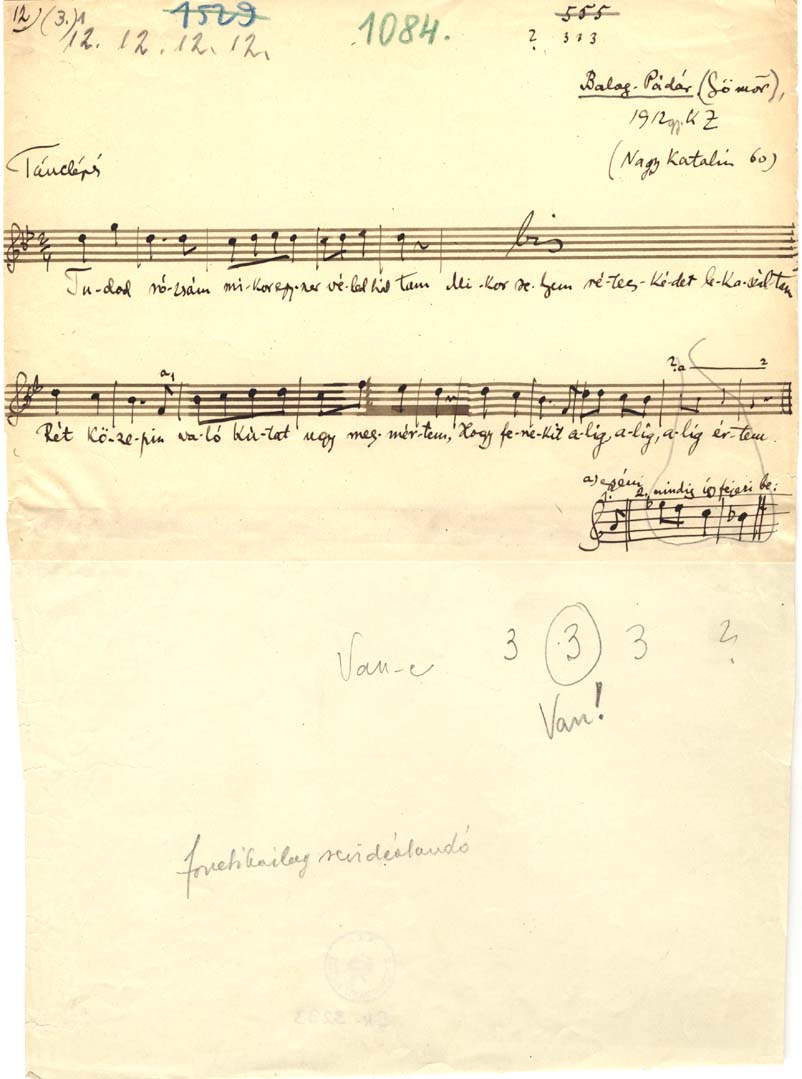 12) (3.) 1 1529 1084. 555
12. 12. 12. 12. ? 3 1 3
Balog-Pádár (Gömör),
1912 gy. K Z
(Nagy Katalin 60)
Tánclépés
2/4 bis
Tu-dod ró-zsám mi-kor egy-szer vé-led hál-tam Mi-kor se-lyem ré-tes-ké-det le-ka-szál-tam
a) 1 2. a 2
Rét kö-ze-pin va-ló kú-tat ugy meg-mér-tem, Hogy fe-ne-kit a-lig, a-lig, a-lig ér-tem.
a)
1. 2. mindig így fejezi be:
Van-e 3 3 3 ?
Van!
fonetikailag revideálandó